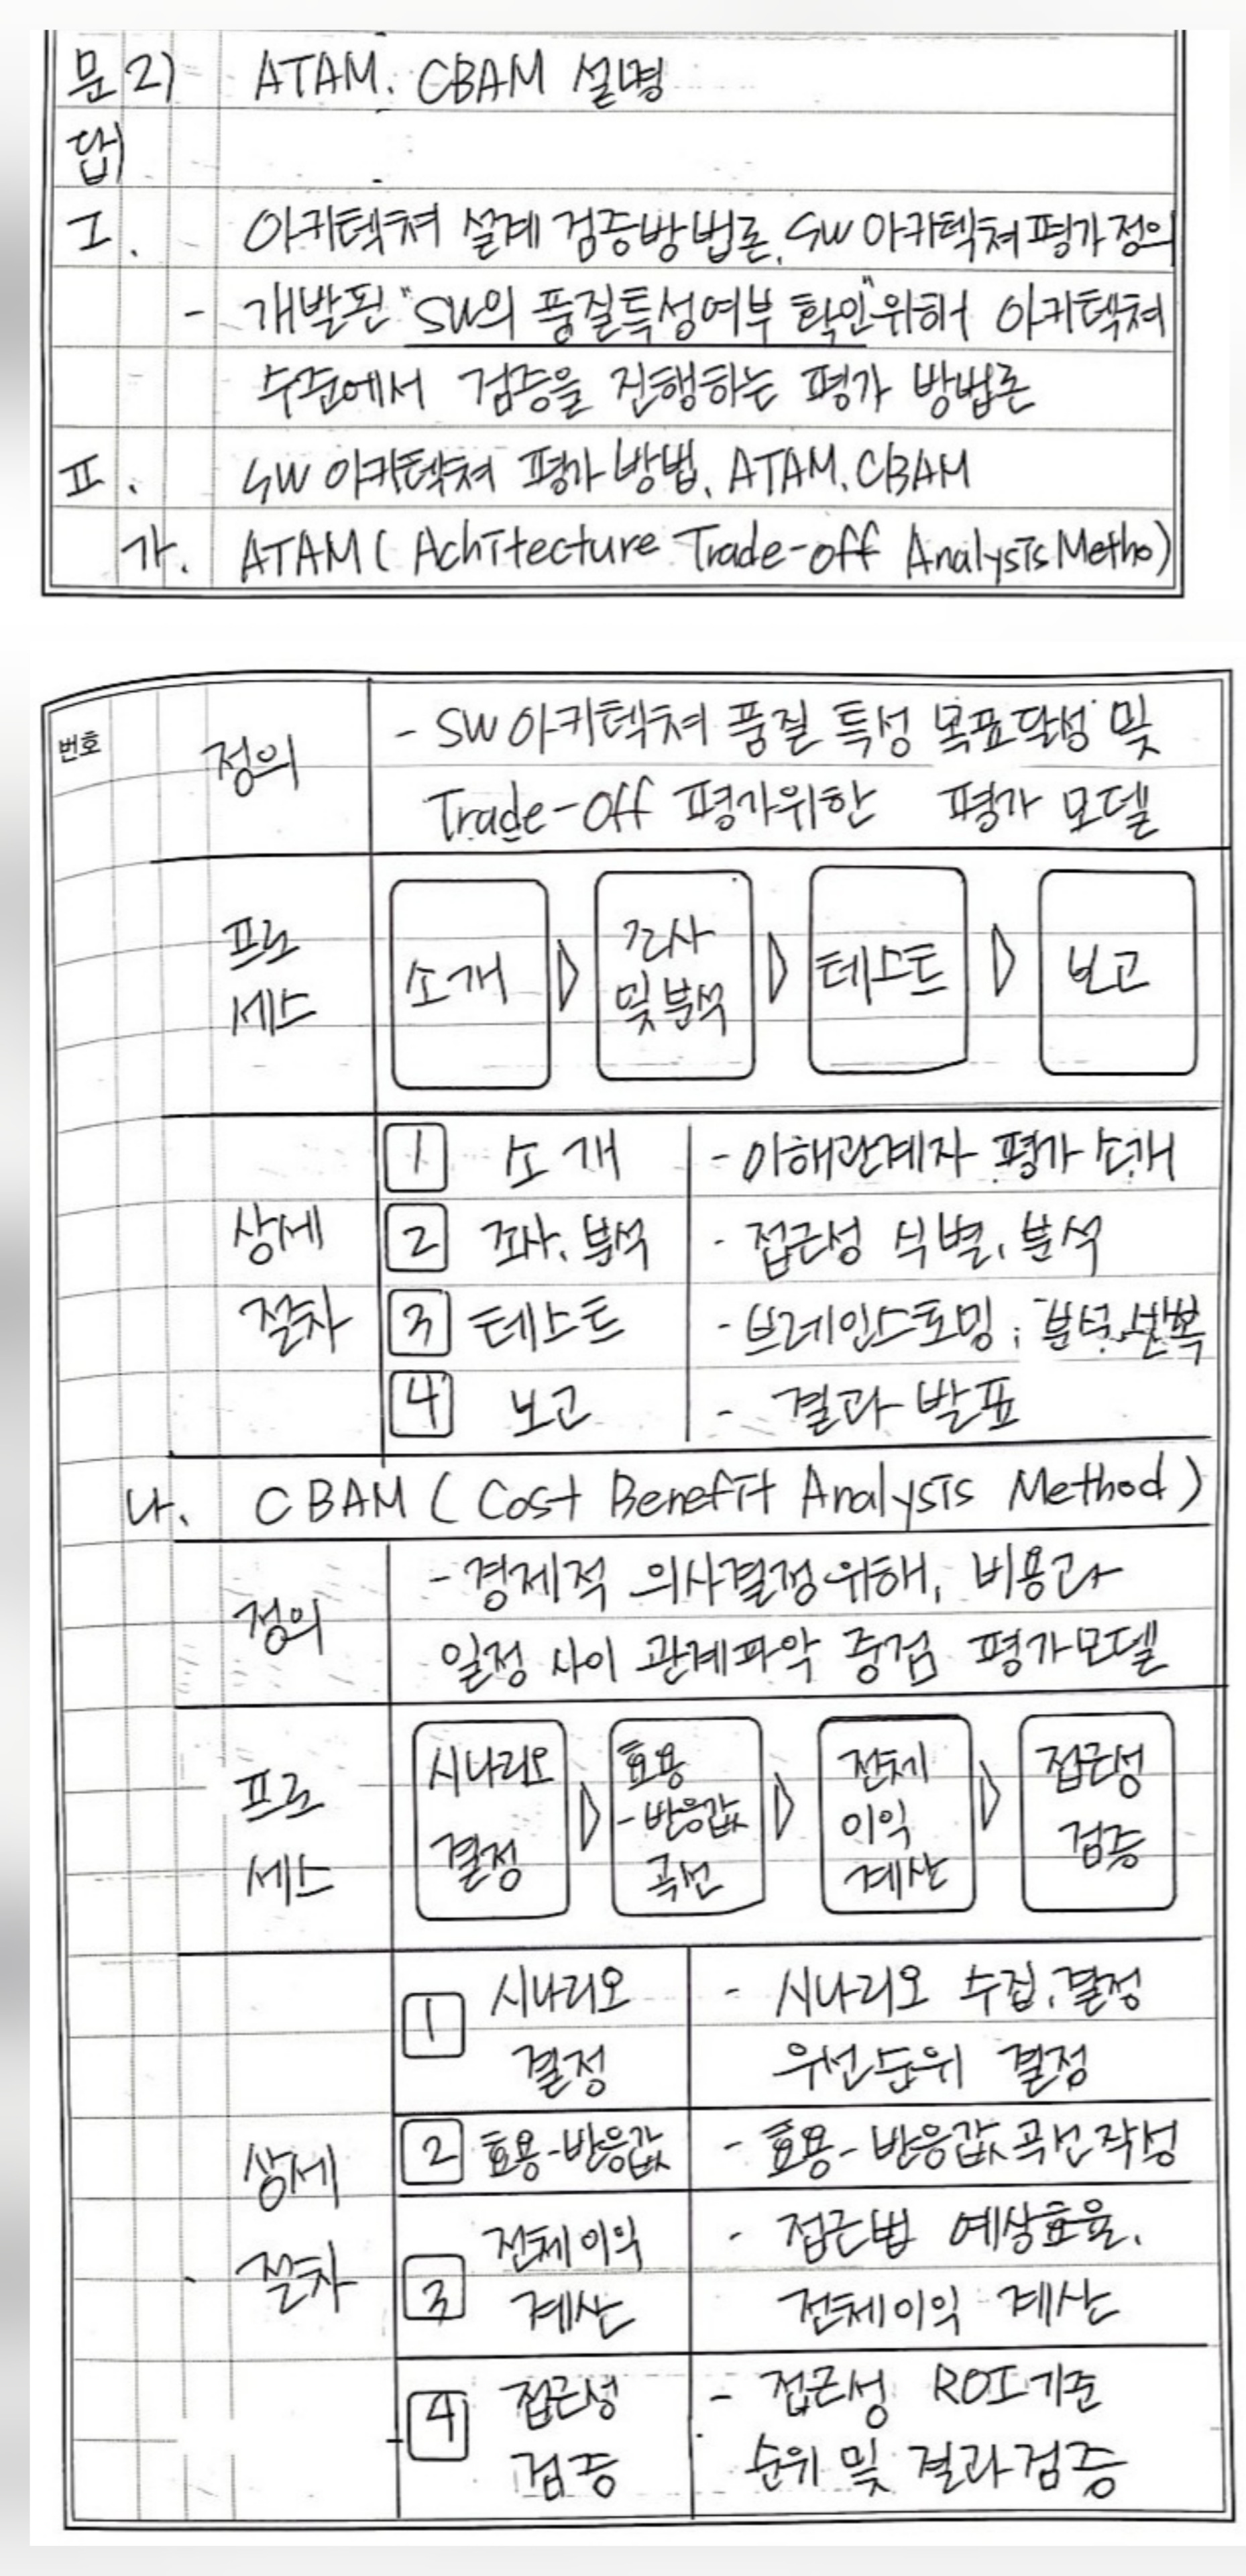 문2) ATAM, CBAM 설명
답)
I. 아키텍쳐 설계 검증방법론, SW아키텍쳐평가정의
- 개발된 "SW의 품질특성여부 확인"위해 아키텍쳐
수준에서 검증을 진행하는 평가 방법론
II. SW 아키텍쳐 평가방법, ATAM, CBAM
가. ATAM ( Achitecture Trade-off Analysis Metho)
번호
정의
- SW아키텍쳐 품질 특성 목표달성 및
Trade-Off 평가위한 평가 모델
프로
세스
소개
조사
및 분석
테스트
보고
상세
절차
1 소개 - 이해관계자 평가 소개
2 조사, 분석 - 접근성 식별, 분석
3 테스트 - 브레인스토밍, 분석, 반복
4 보고 - 결과 발표
나. CBAM ( Cost Benefit Analysis Method )
정의
- 경제적 의사결정 위해, 비용과
일정 사이 관계파악 중점 평가모델
프로
세스
시나리오
결정
효용
-반응값
곡선
전체
이익
계산
접근성
검증
상세
절차
1 시나리오
결정
- 시나리오 수집, 결정
우선순위 결정
2 효용-반응값 - 효용-반응값 곡선 작성
3 전체이익
계산
- 접근법 예상효율,
전체이익 계산
4 접근성
검증
- 접근성 ROI기준
순위 및 결과검증